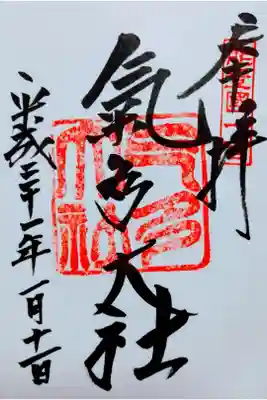 奉拝
氣多大社
平成三十一年一月十一日